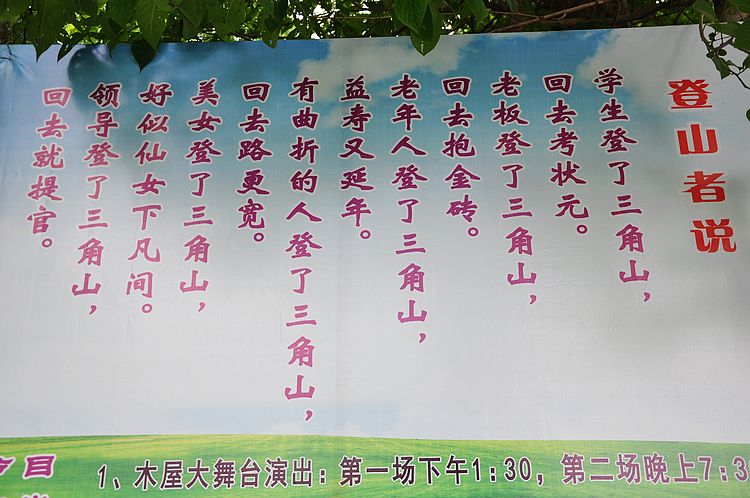 登山者说
学生登了三角山，
回去考状元。
老板登了三角山，
回去抱金砖。
老年人登了三角山，
益寿又延年。
有曲折的人登了三角山，
回去路更宽。
美女登了三角山，
好似仙女下凡间。
领导登了三角山，
回去就提官。
目
1、木屋大舞台演出：第一场下午1:30，第二场晚上7:30